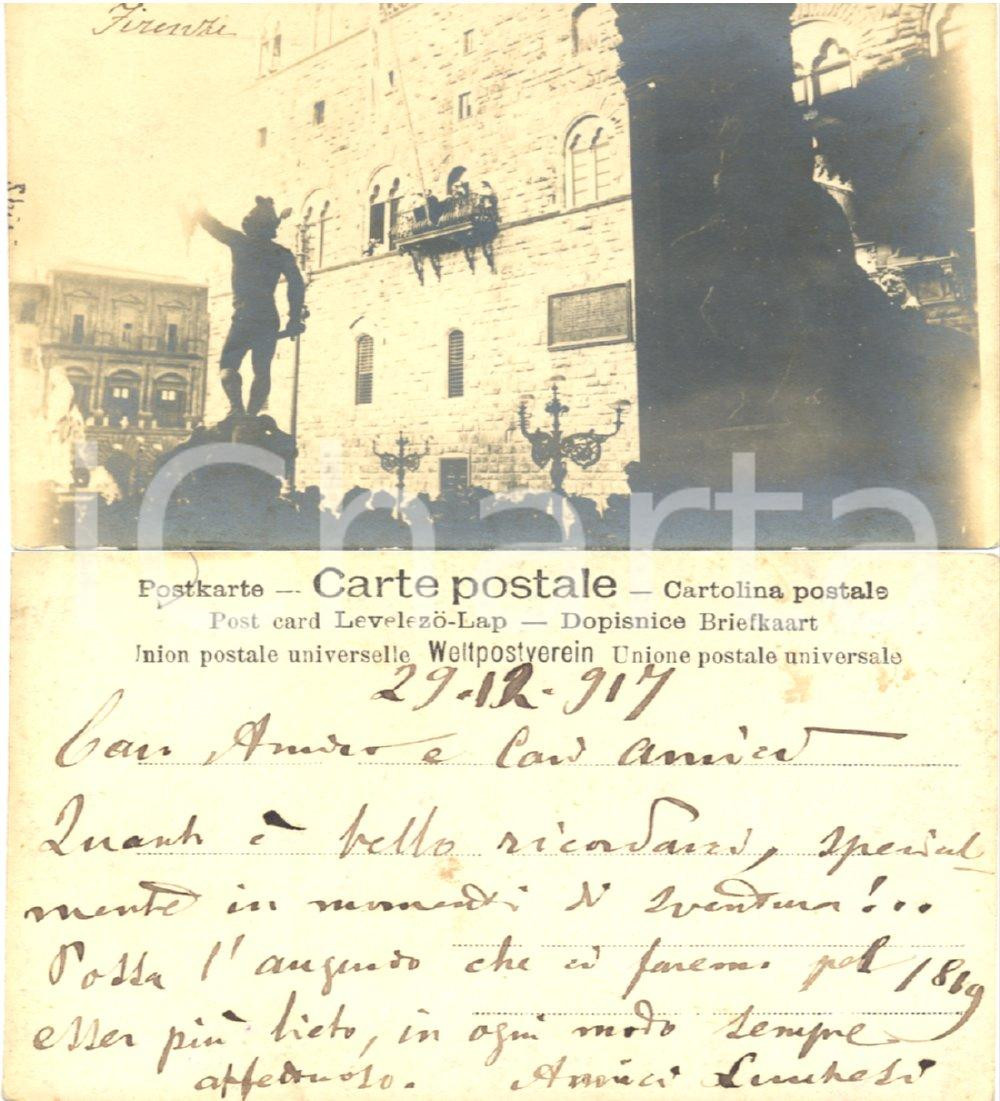 Firenze
iCharta
Postkarte — Carte postale — Cartolina postale
Post card Levelező-Lap — Dopisnice Briefkaart
Union postale universelle Weltpostverein Unione postale universale
29.12.917
Caro Amico e Cari amici
Quanto è bello ricordarci, special
mente in momenti di sventura!..
Possa l'augurio che ci faremo pel 1819
esser più lieto, in ogni modo sempre
affettuoso. Amici Lucchesi